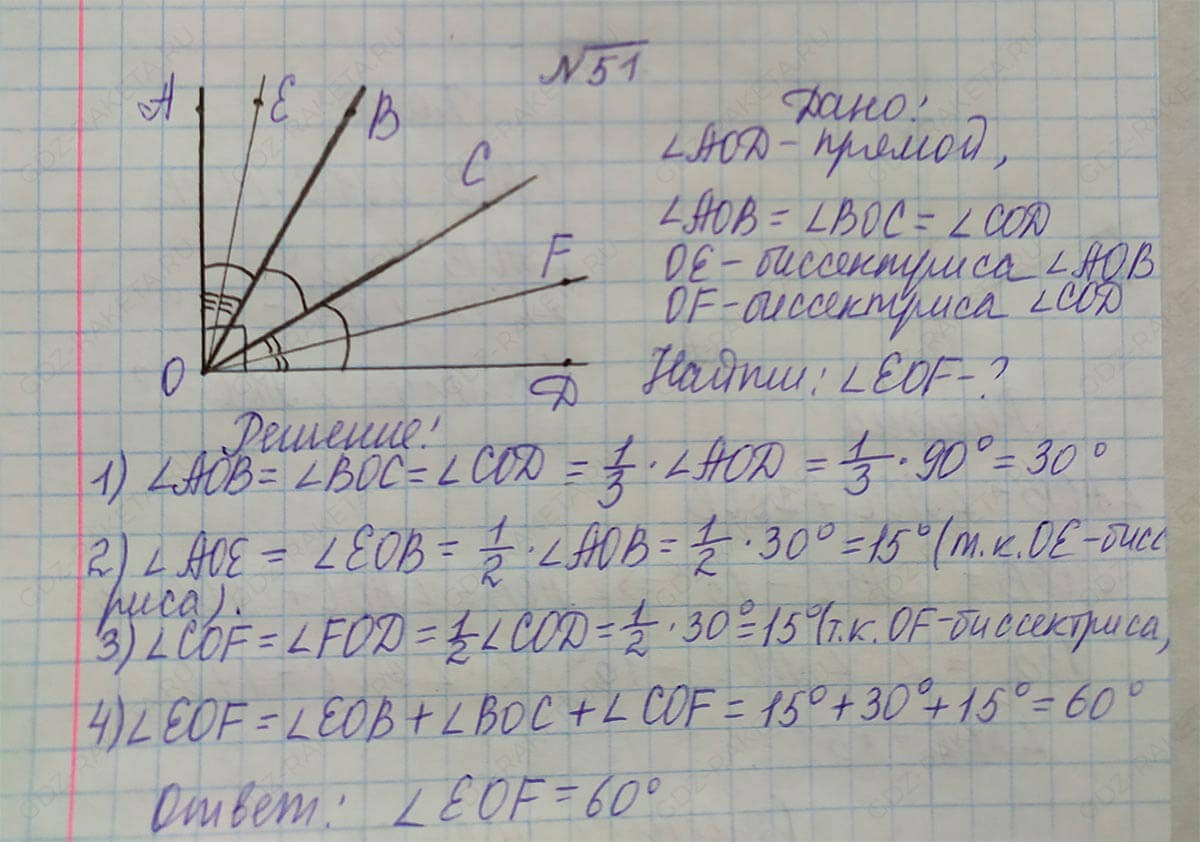 №51
A E B C F O D
Дано:
∠AOD - прямой,
∠AOB = ∠BOC = ∠COD
OE - биссектриса ∠AOB
OF - биссектриса ∠COD
Найти: ∠EOF - ?
Решение:
1) ∠AOB = ∠BOC = ∠COD = 1/3 · ∠AOD = 1/3 · 90° = 30°
2) ∠AOE = ∠EOB = 1/2 · ∠AOB = 1/2 · 30° = 15° (т.к. OE - бисс
риса).
3) ∠COF = ∠FOD = 1/2 ∠COD = 1/2 · 30° = 15° (т.к. OF - биссектриса,
4) ∠EOF = ∠EOB + ∠BOC + ∠COF = 15° + 30° + 15° = 60°
Ответ: ∠EOF = 60°
GDZ-RAKETA.RU